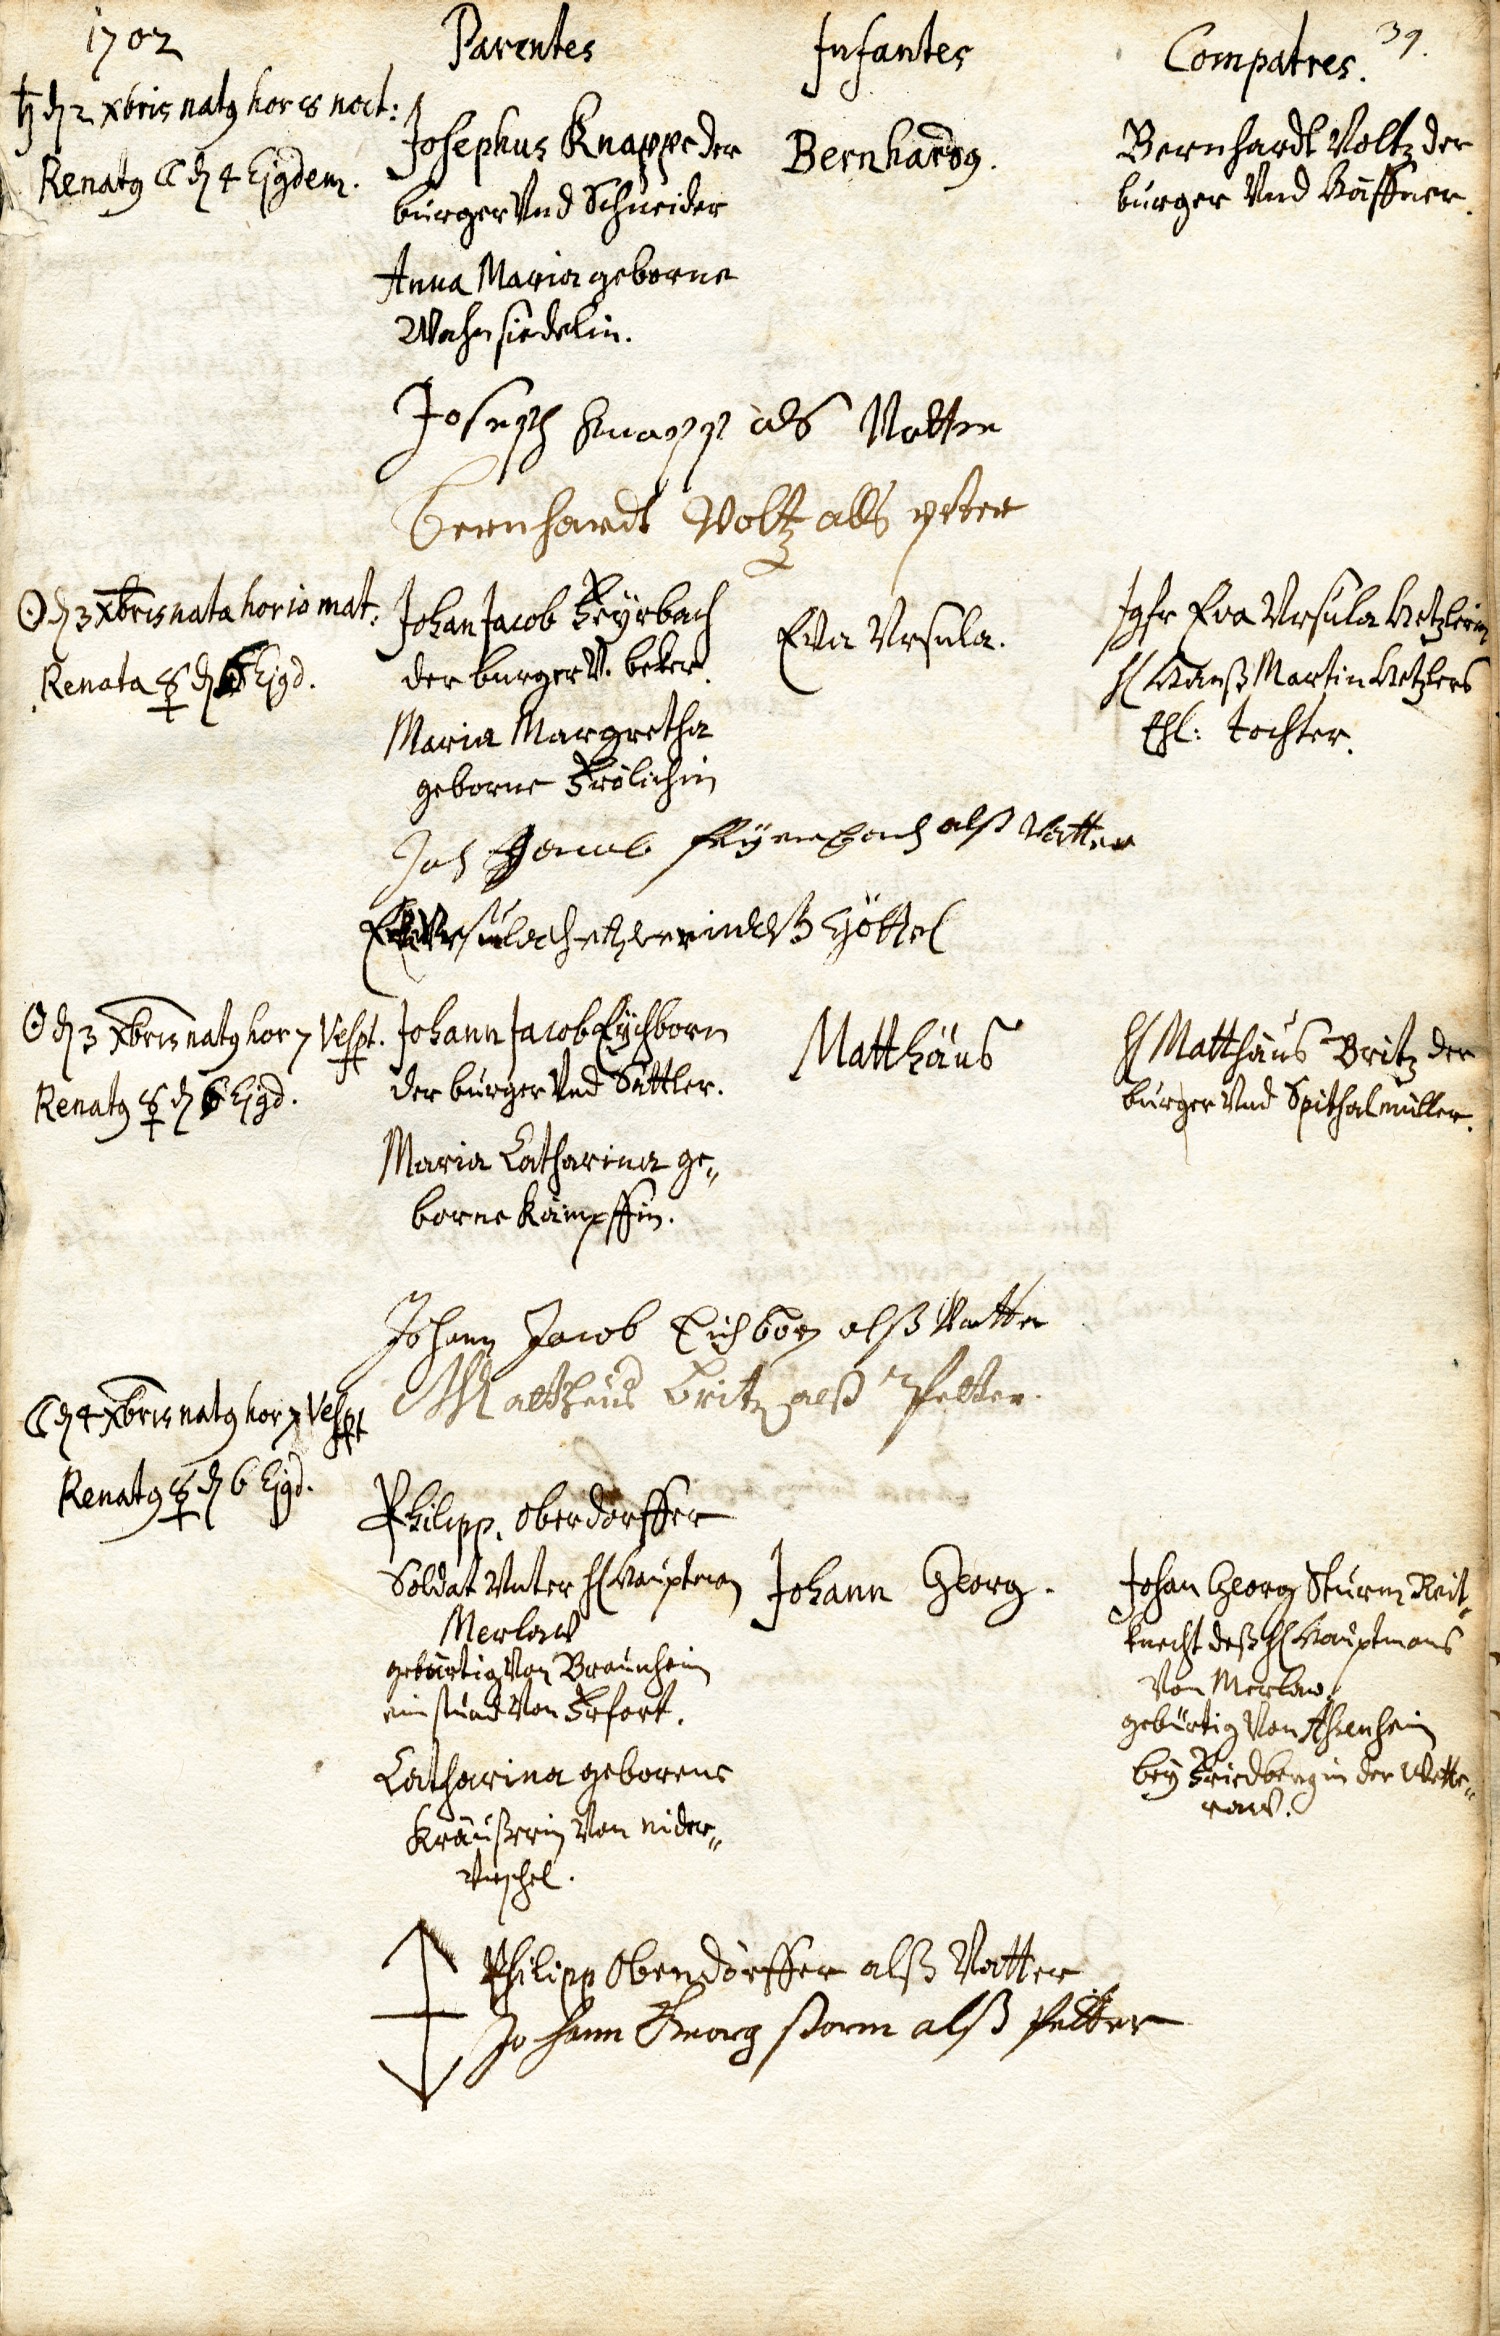 1702 Parentes Infantes Compatres. 39.
♄ d 2 xbris natg hor 8 noct:
Renatg ☾ d 4 Ejgdem.
Josephus Knappe der
burger Vnd Schneider
Anna Maria geborne
Wahnsiedelin.
Bernhardg.
Bernhardt Voltz der
burger Vnd Haffner.
Joseph Knapp als Vatter
bernhardt Voltz alls petter
☉ d 3 xbris nata hor 10 mat:
Renata ☿ d 6 Ejgd.
Johan Jacob Feyrbach
der burger V. beker.
Maria Margretha
geborne Frölichin
Eva Vrsula.
Jgfr Eva Vrsula Hetzlerin
H Hanß Martin Hetzlers
Ehl: tochter.
Joh Jacob feyerbach alß Vatter
Eva Vrsula hetzlerin alß Göttel
☉ d 3 xbris natg hor 7 Vespt.
Renatg ☿ d 6 Ejgd.
Johann Jacob Eychborn
der burger Vnd Sattler.
Maria Catharina ge„
borne Kämpffin.
Matthäus
H Matthäus Britz der
burger Vnd Spithalmüller.
Johann Jacob Eichborn alß Vatter
Mattheus Britz alß Petter.
☾ d 4 xbris natg hor 7 Vespt
Renatg ☿ d 6 Ejgd.
Philipp. Oberdorffer
Soldat Vnter H Hauptman
Merlaw
gebürtig Von Braunheim
ein stund Von Erfort.
Catharina geborene
Kräußerin Von nider„
Johann Georg.
Johan Georg Sturm Reit„
knecht deß H Hauptmans
Von Merlaw.
gebürtig Von
bey Friedberg in der Wette„
raw.
Philipp Obendörffer alß Vatter
Johann Georg storm alß Petter